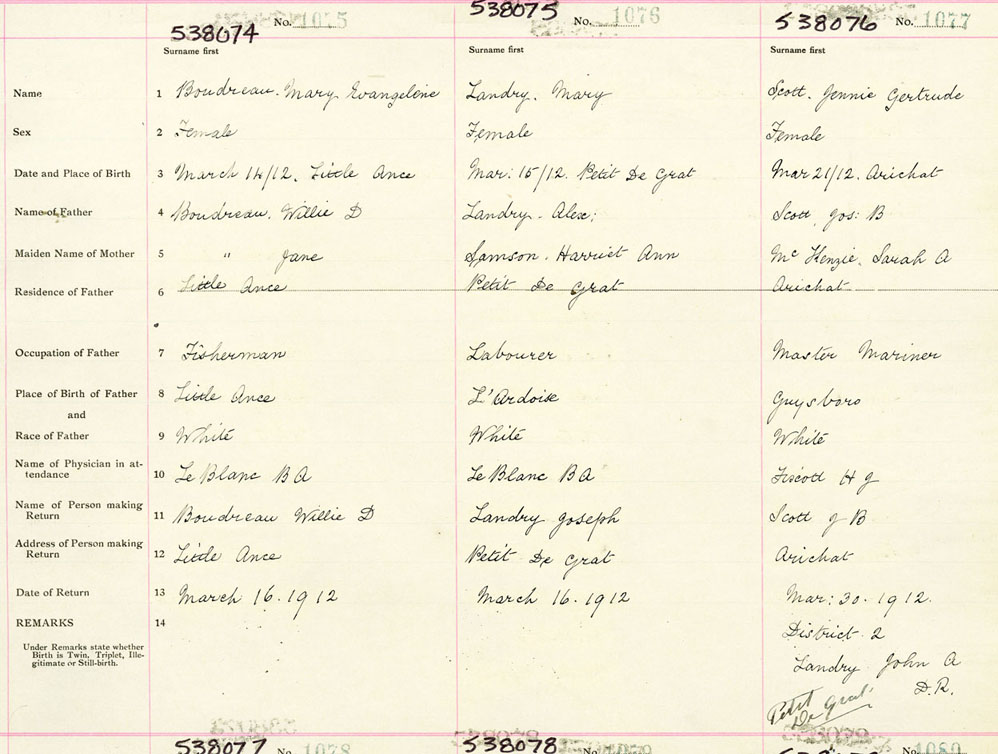 538074 No. 1075 538075 No. 1076 538076 No. 1077
Surname first Surname first Surname first
Name 1 Boudreau. Mary Evangeline Landry. Mary Scott. Jennie Gertrude
Sex 2 Female Female Female
Date and Place of Birth 3 March 14/12. Little Ance Mar: 15/12. Petit De Grat Mar 21/12. Arichat
Name of Father 4 Boudreau. Willie D Landry. Alex: Scott, Jos: B
Maiden Name of Mother 5 " Jane Samson. Harriet Ann Mc Kenzie. Sarah A
Residence of Father 6 Little Ance Petit De Grat Arichat
Occupation of Father 7 Fisherman Labourer Master Mariner
Place of Birth of Father 8 Little Ance L'Ardoise Guysboro
and
Race of Father 9 White White White
Name of Physician in at-
tendance 10 Le Blanc B A Le Blanc B A H J
Name of Person making
Return 11 Boudreau Willie D Landry Joseph Scott J B
Address of Person making
Return 12 Little Ance Petit De Grat Arichat
Date of Return 13 March 16. 1912 March 16. 1912 Mar: 30. 1912.
REMARKS 14 District 2
Under Remarks state whether
Birth is Twin, Triplet, Ille-
gitimate or Still-birth.
Landry John A
D.R.
Petit
De Grat
538077 No. 1078 538078 No. 1080